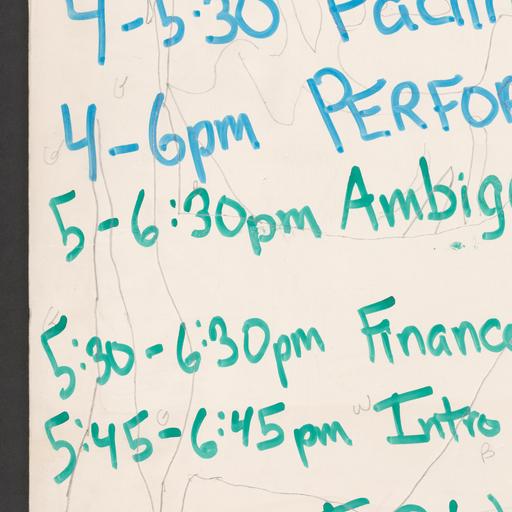 4-5:30
4-6pm PERFOR
5-6:30pm Ambig
5:30-6:30pm Finance
5:45-6:45pm Intro